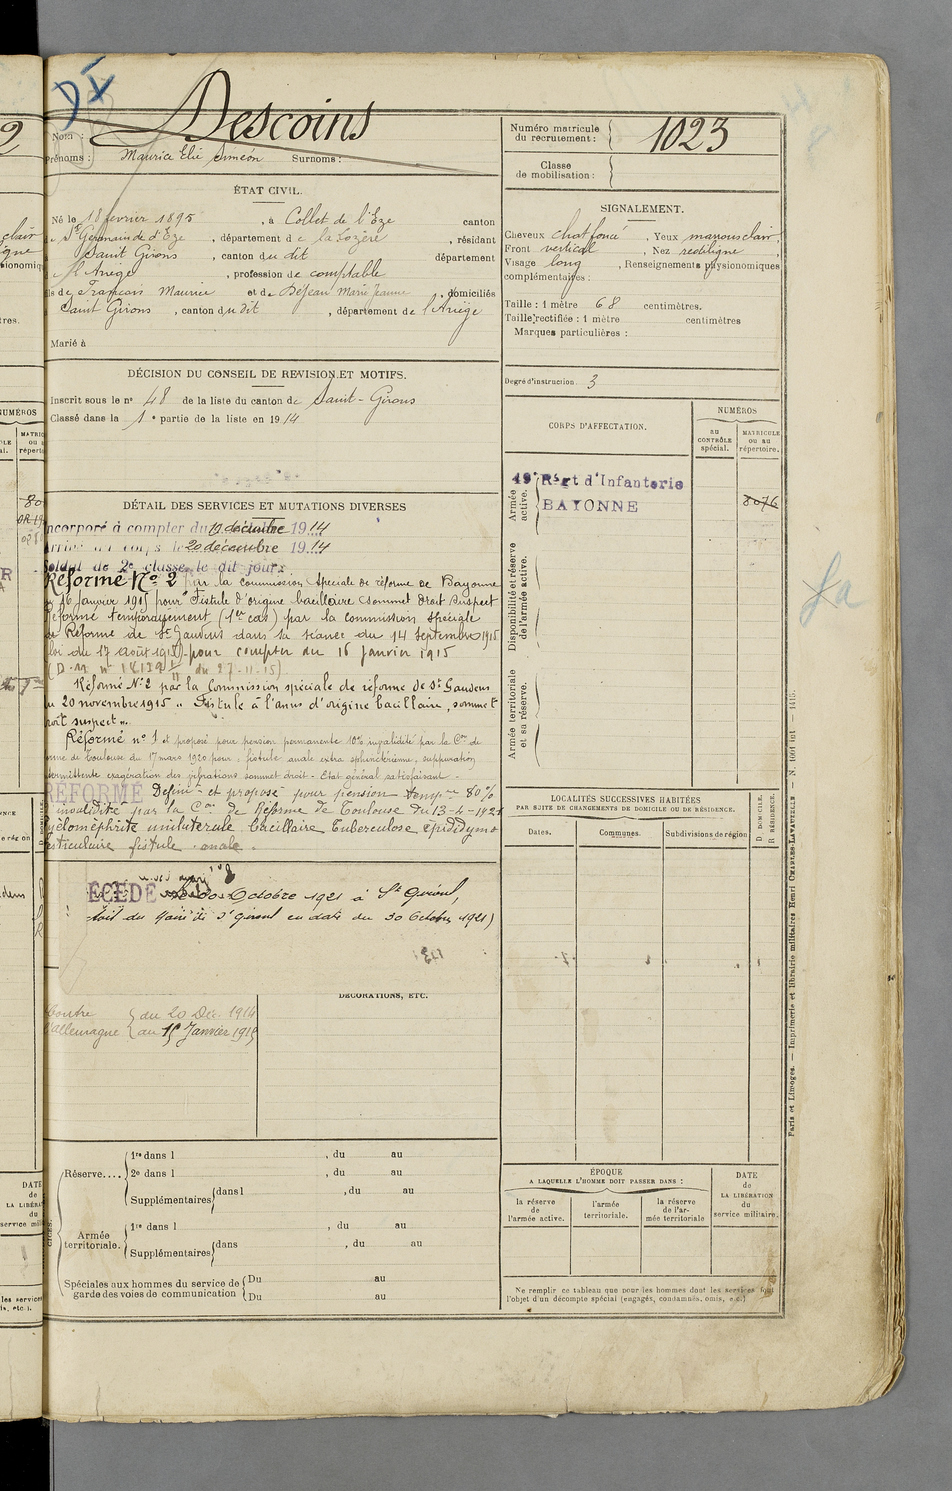 DX
Descoins
Nom :
Prénoms : Maurice Elie Siméon Surnoms :
Numéro matricule
du recrutement : 1023
Classe
de mobilisation :
ÉTAT CIVIL.
Né le 18 février 1895, à Collet de l'Eze canton
St Germain de d'Eze, département de la Lozère, résidant
Saint Girons, canton du dit département
l'Ariège, profession de comptable
ls de François Maurice et de Dejean Marie Jeanne, domiciliés
Saint Girons, canton du dit, département de l'Ariège
Marié à
SIGNALEMENT.
Cheveux chat foncé, Yeux marrons clair,
Front vertical, Nez rectiligne,
Visage long, Renseignements physionomiques
complémentaires :
Taille : 1 mètre 68 centimètres.
Taille rectifiée : 1 mètre centimètres
Marques particulières :
DÉCISION DU CONSEIL DE REVISION ET MOTIFS.
Inscrit sous le no 48 de la liste du canton de Saint-Girons
Classé dans la 1e partie de la liste en 1914
Degré d'instruction. 3
CORPS D'AFFECTATION.
NUMÉROS
au
CONTRÔLE
spécial.
MATRICULE
ou au
répertoire.
Armée
active.
49e Régt d'Infanterie
BAYONNE
8076
Disponibilité et réserve
de l'armée active.
Armée territoriale
et sa réserve.
DÉTAIL DES SERVICES ET MUTATIONS DIVERSES
ncorporé à compter du 19 décembre 1914
arrivé au corps le 20 décembre 1914
Soldat de 2e classe le dit jour.
Réformé No 2 par la commission spéciale de réforme de Bayonne
16 Janvier 1915 pour Fistule d'origine bacillaire sommet droit suspect
Réformé temporairement (1er cas) par la commission spéciale
de Réforme de St Gaudens dans sa séance du 14 Septembre 1915
loi du 17 août 1915) pour compter du 16 janvier 1915
(D.M. no 18139 du 27-11-15)
Réformé No 2 par la Commission spéciale de réforme de St Gaudens
du 20 novembre 1915 " Fistule à l'anus d'origine bacillaire, sommet
droit suspect ".
Réformé no 1 et proposé pour pension permanente 10% invalidité par la Con de
orme de Toulouse du 17 mars 1920 pour : fistule anale extra sphinctérienne, suppuration
intermittente exagération des vibrations sommet droit - Etat général satisfaisant -
RÉFORMÉ Définit et proposé pour pension temp 80 %
invalidité par la Con de Réforme de Toulouse du 13-4-1921
pyélonéphrite unilatérale bacillaire tuberculose épididymo
testiculaire fistule anale.
ÉCÉDÉ Octobre 1921 à St Girons,
du Maire de St Girons en date du 30 Octobre 1921)
LOCALITÉS SUCCESSIVES HABITÉES
PAR SUITE DE CHANGEMENTS DE DOMICILE OU DE RÉSIDENCE.
Dates.
Communes.
Subdivisions de région
D. DOMICILE.
R. RÉSIDENCE.
DÉCORATIONS, ETC.
Contre
l'allemagne
du 20 Déc. 1914
au 15 Janvier 1915
Réserve....
1re dans l , du au
2e dans l , du au
Supplémentaires dans l , du au
Armée
territoriale.
1re dans l , du au
Supplémentaires dans , du au
Spéciales aux hommes du service de
garde des voies de communication
Du au
Du au
ÉPOQUE
A LAQUELLE L'HOMME DOIT PASSER DANS :
la réserve
de
l'armée active.
l'armée
territoriale.
la réserve
de l'ar-
mée territoriale
DATE
de
LA LIBÉRATION
du
service militaire.
Ne remplir ce tableau que pour les hommes dont les services font
l'objet d'un décompte spécial (engagés, condamnés, omis, e.c.)
Paris et Limoges. — Imprimerie et librairie militaires Henri CHARLES-LAVAUZELLE